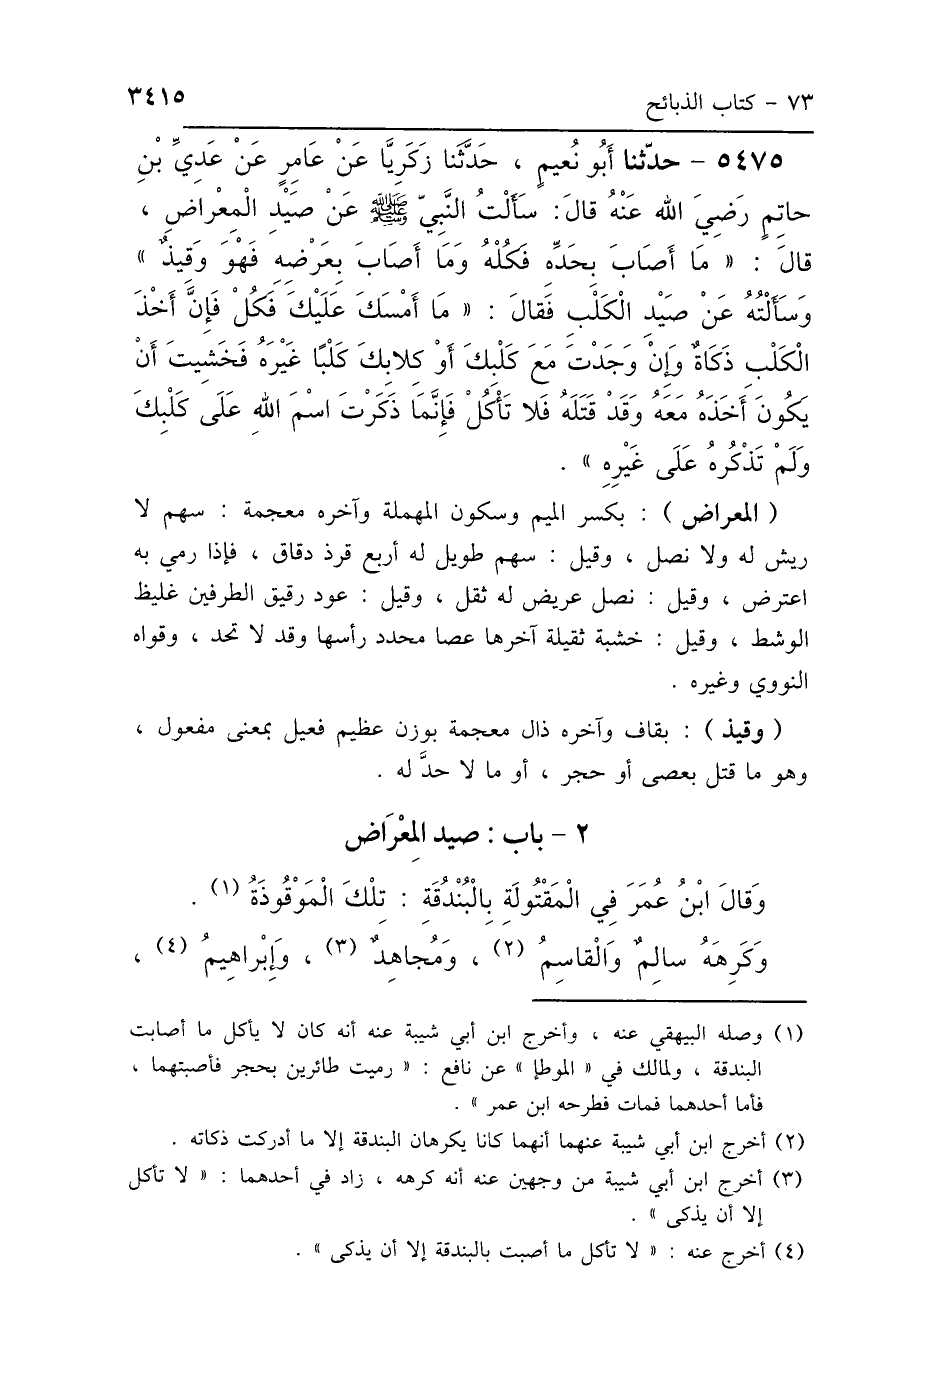 ٧٣ - كتاب الذبائح ٣٤١٥
٥٤٧٥ - حدّثنا أَبُو نُعيمٍ ، حَدَّثَنا زَكَرِيَّا عَنْ عَامرٍ عَنْ عَديِّ بْنِ
حاتمٍ رَضيَ الله عَنْهُ قالَ: سَأَلْتُ النَّبيّ ﷺ عَنْ صَيْدِ الْمعْراضِ ،
قالَ : « مَا أَصَابَ بحَدِّه فَكُلْهُ وَمَا أَصابَ بعَرْضه فَهْوَ وَقيذٌ »
وَسَأَلْتُهُ عَنْ صَيْدِ الْكَلْبِ فَقالَ : « مَا أَمْسَكَ عَلَيْكَ فَكُلْ فَإِنَّ أَخْذَ
الْكَلْبِ ذَكَاةٌ وَإِنْ وَجَدْتَ مَعَ كَلْبِكَ أَوْ كلابكَ كَلْبًا غَيْرَهُ فَخَشِيتَ أَنْ
يَكُونَ أَخَذَهُ مَعَهُ وَقَدْ قَتَلَهُ فَلا تَأْكُلْ فَإِنَّمَا ذَكَرْتَ اسْمَ اللهِ عَلَى كَلْبِكَ
وَلَمْ تَذْكُرهُ عَلَى غَيْرِهِ » .
( المعراض ) : بكسر الميم وسكون المهملة وآخره معجمة : سهم لا
ريش له ولا نصل ، وقيل : سهم طويل له أربع قرذ دقاق ، فإذا رمي به
اعترض ، وقيل : نصل عريض له ثقل ، وقيل : عود رقيق الطرفين غليظ
الوشط ، وقيل : خشبة ثقيلة آخرها عصا محدد رأسها وقد لا تحد ، وقواه
النووي وغيره .
( وقيذ ) : بقاف وآخره ذال معجمة بوزن عظيم فعيل بمعنى مفعول ،
وهو ما قتل بعصى أو حجر ، أو ما لا حدَّ له .
٢ - باب : صيدِ المعْرَاض
وَقَالَ ابْنُ عُمَرَ فِي الْمَقْتُولَةِ بِالْبُنْدُقَةِ : تِلْكَ الْمَوْقُوذَةُ (١) .
وَكَرِهَهُ سالِمٌ وَالْقاسِمُ (٢) ، وَمُجاهِدٌ (٣) ، وَإِبْراهِيمُ (٤) ،
(١) وصله البيهقي عنه ، وأخرج ابن أبي شيبة عنه أنه كان لا يأكل ما أصابت
البندقة ، ولمالك في « الموطإ » عن نافع : « رميت طائرين بحجر فأصبتهما ،
فأما أحدهما فمات فطرحه ابن عمر » .
(٢) أخرج ابن أبي شيبة عنهما أنهما كانا يكرهان البندقة إلا ما أدركت ذكاته .
(٣) أخرج ابن أبي شيبة من وجهين عنه أنه كرهه ، زاد في أحدهما : « لا تأكل
إلا أن يذكى » .
(٤) أخرج عنه : « لا تأكل ما أصبت بالبندقة إلا أن يذكى » .